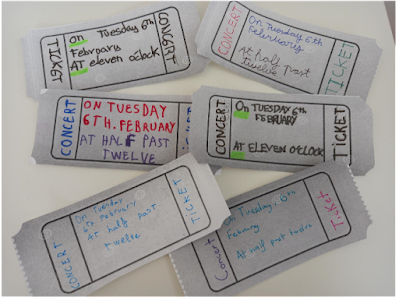 TICKET
On Tuesday 6th
February
AT eleven o'clock
CONCERT
CONCERT
On Tuesday 6th
February
At half past
twelve
TICKET
CONCERT
ON TUESDAY
6TH. FEBRUARY
AT HALF PAST
TWELVE
CONCERT
On TUESDAY 6th
FEBRUARY
AT ELEVEN O'CLOCK
TICKET
CONCERT
On Tuesday
February
At half past
twelve
TICKET
Concert
On Tuesday,
February
At half past twelve
Ticket